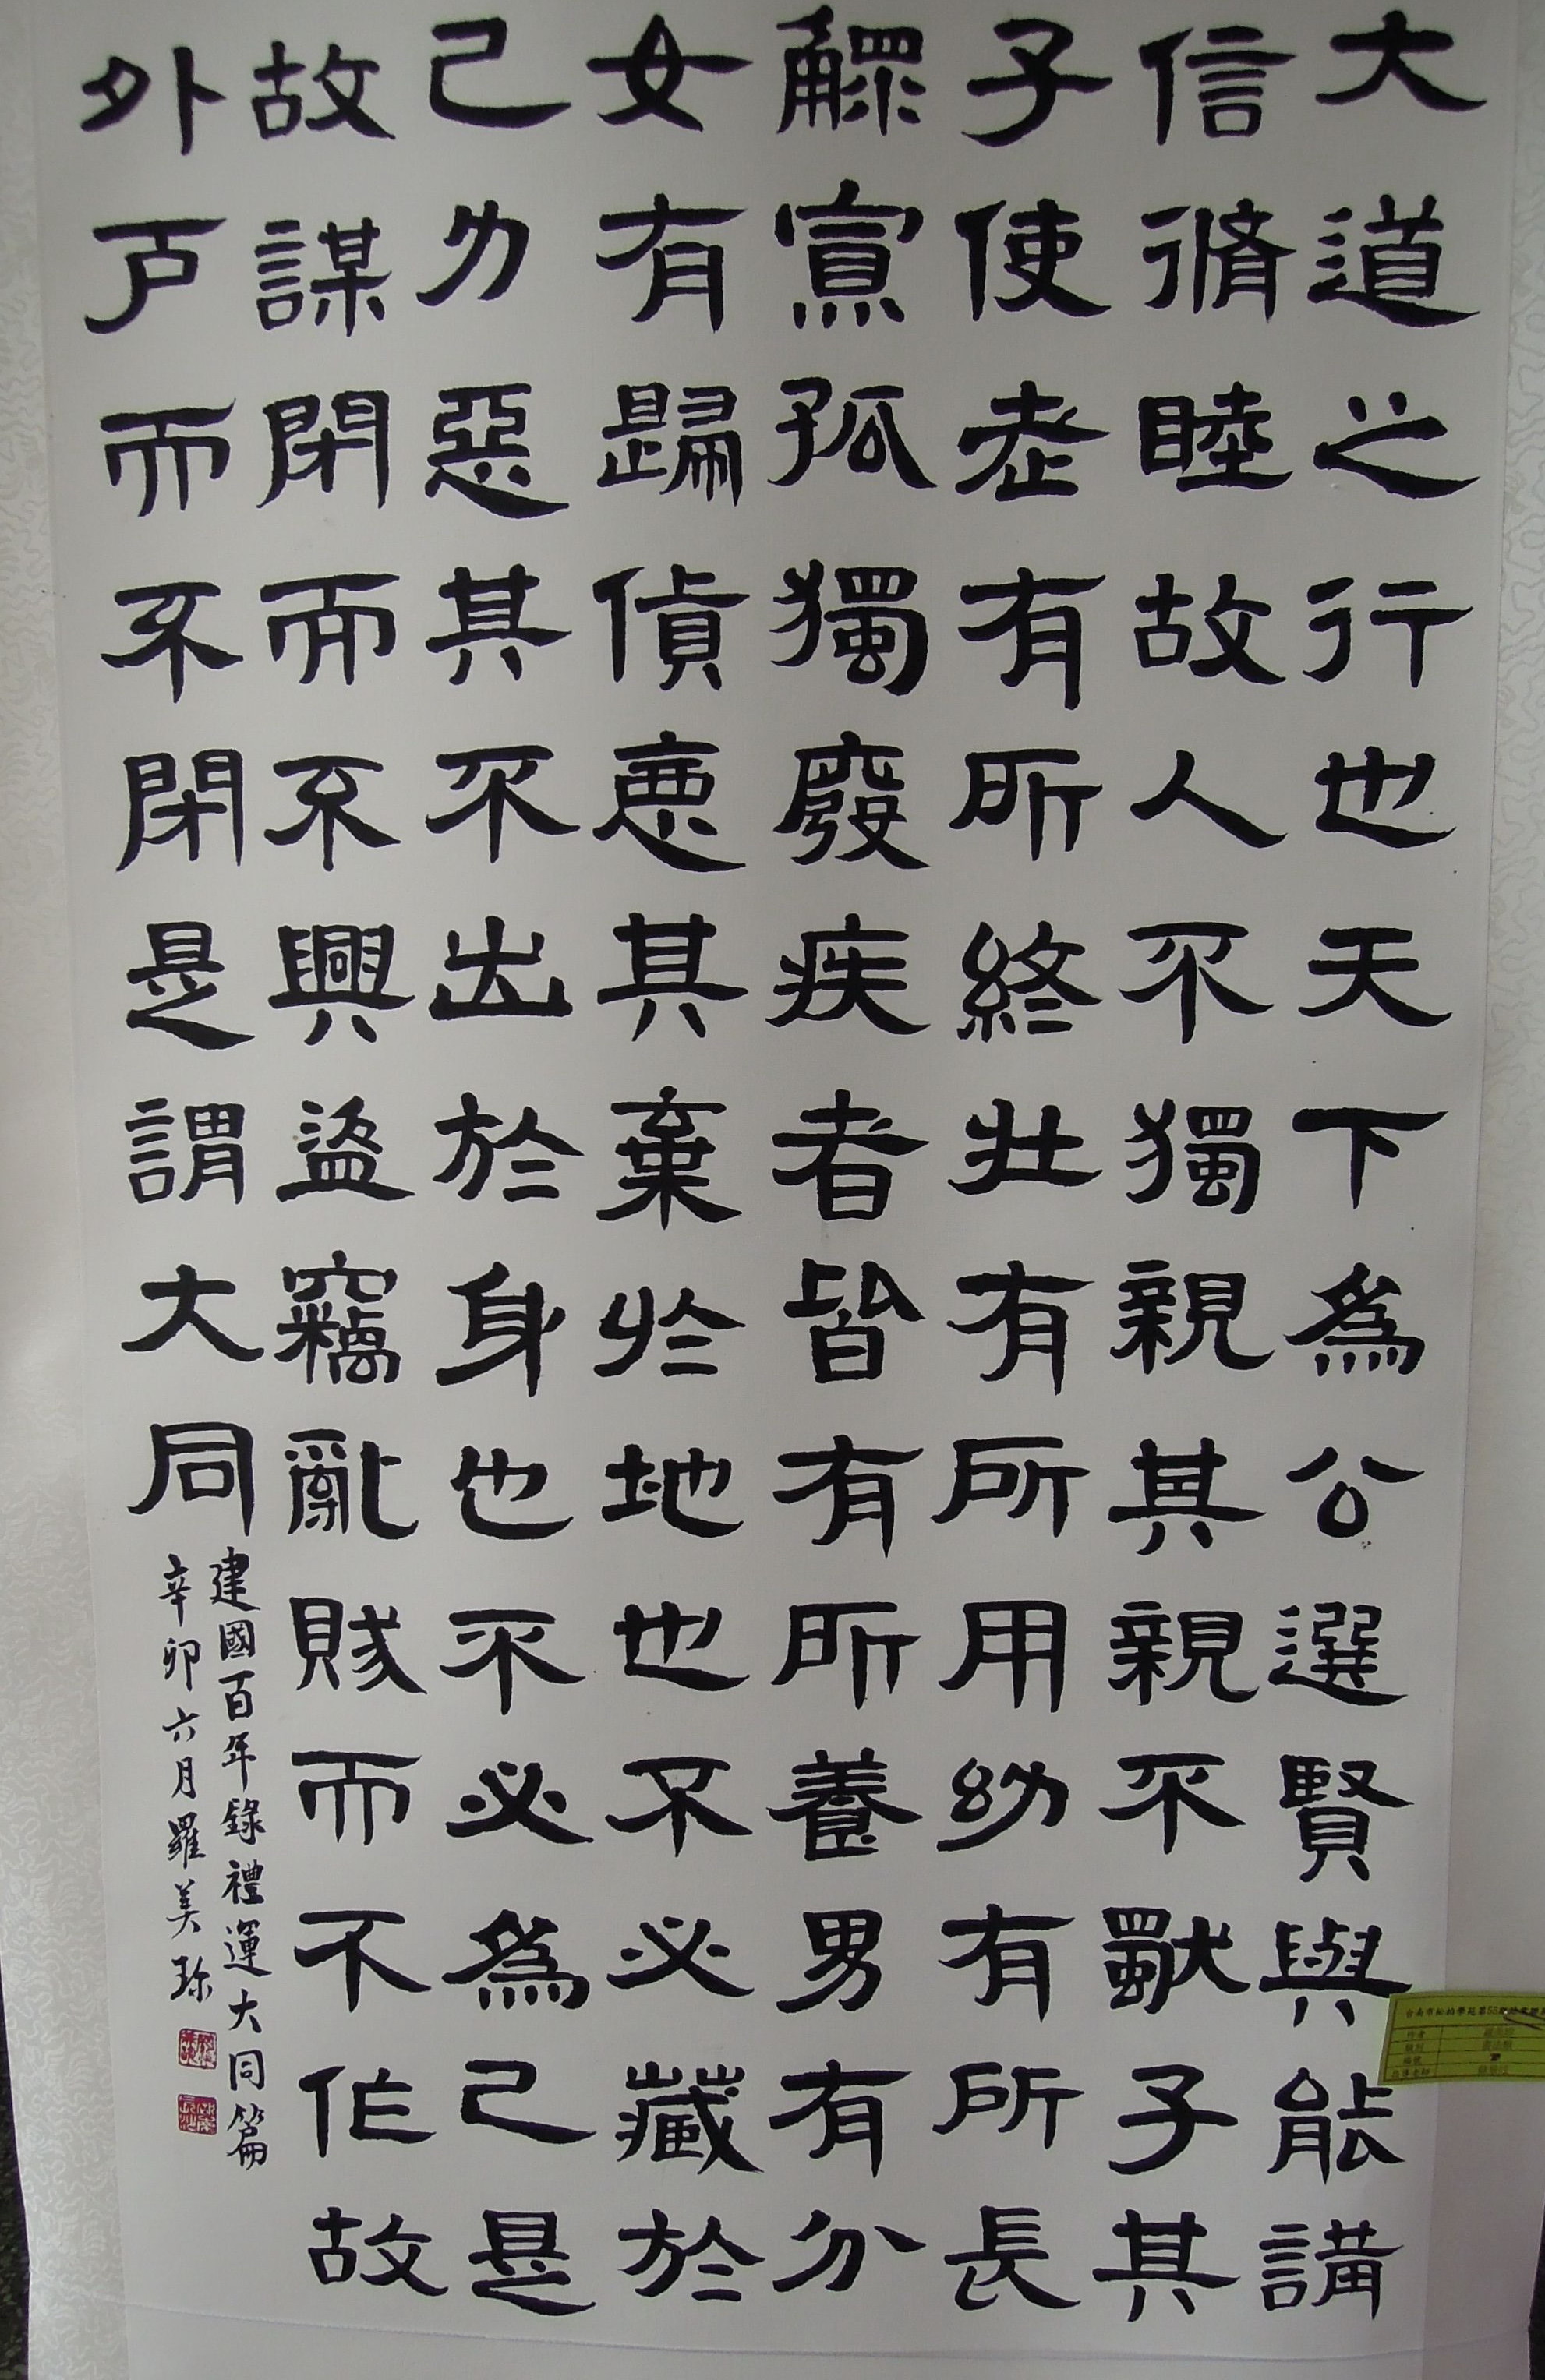 大道之行也天下為公選賢與能講
信脩睦故人不獨親其親不獨子其
子使老有所終壯有所用幼有所長
鰥寡孤獨廢疾者皆有所養男有分
女有歸貨惡其棄於地也不必藏於
己力惡其不出於身也不必為己是
故謀閉而不興盜竊亂賊而不作故
外戶而不閉是謂大同
建國百年錄禮運大同篇
辛卯六月羅美珍